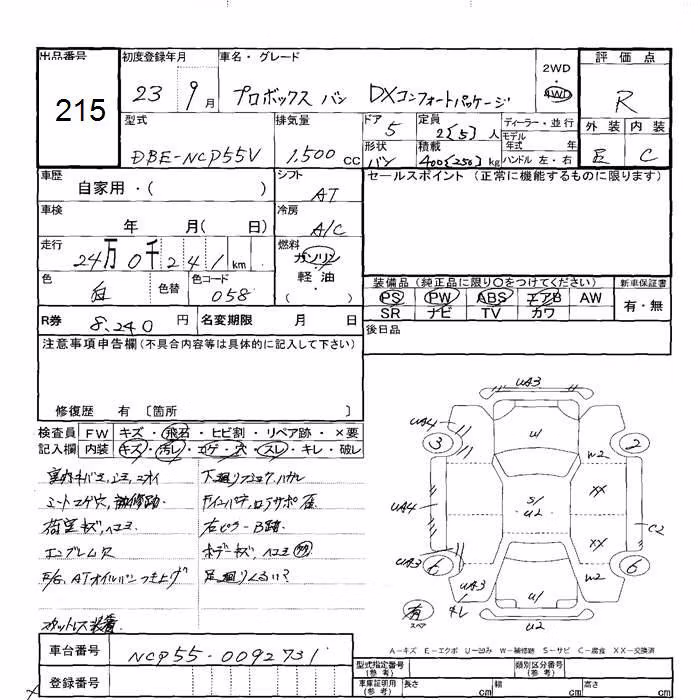 出品番号 初度登録年月 車名・グレード 2WD 評価点
215 23 9月 プロボックス バン DXコンフォートパッケージ 4WD R
型式 排気量 ドア 5 定員 2〔5〕人 ディーラー・並行 外装 内装
DBE-NCP55V 1,500 cc 形状 バン 積載 400〔250〕kg モデル年式 年 ハンドル 左・右 C
車歴 自家用・( ) シフト AT セールスポイント (正常に機能するものに限ります)
車検 年 月( 日) 冷房 A/C
走行 24万0千241km 燃料 ガソリン
色 白 色替 色コード 058 軽油 ( ・ )
装備品 (純正品に限り○をつけてください) 新車保証書
PS PW ABS エアB AW 有・無
SR ナビ TV カワ
R券 8,240 円 名変期限 月 日 後日品
注意事項申告欄 (不具合内容等は具体的に記入して下さい)
修復歴 有 〔箇所 〕
検査員 FW キズ・飛石・ヒビ割・リペア跡・×要
記入欄 内装 キズ・汚レ・コゲ・穴・スレ・キレ・破レ
シートコゲ穴,補修跡
荷室キズ,ヘコミ
エンブレム欠
スタットレス装着
下廻り
右ピラーB路
ボデーキズ,ヘコミ
足廻り
UA3
UA4 U1 2
3 W2
XX
UA4 S1 U2
XX C2
UA3 6 6
UA3 W2
キレ U1
有 スペア U2
A-キズ E-エクボ U-凹み W-補修跡 S-サビ C-腐食 XX-交換済
車台番号 NCP55-0092731
登録番号
型式指定番号 (参考) 類別区分番号 (参考)
車庫証明用 (参考) 長さ cm 幅 cm 高さ cm